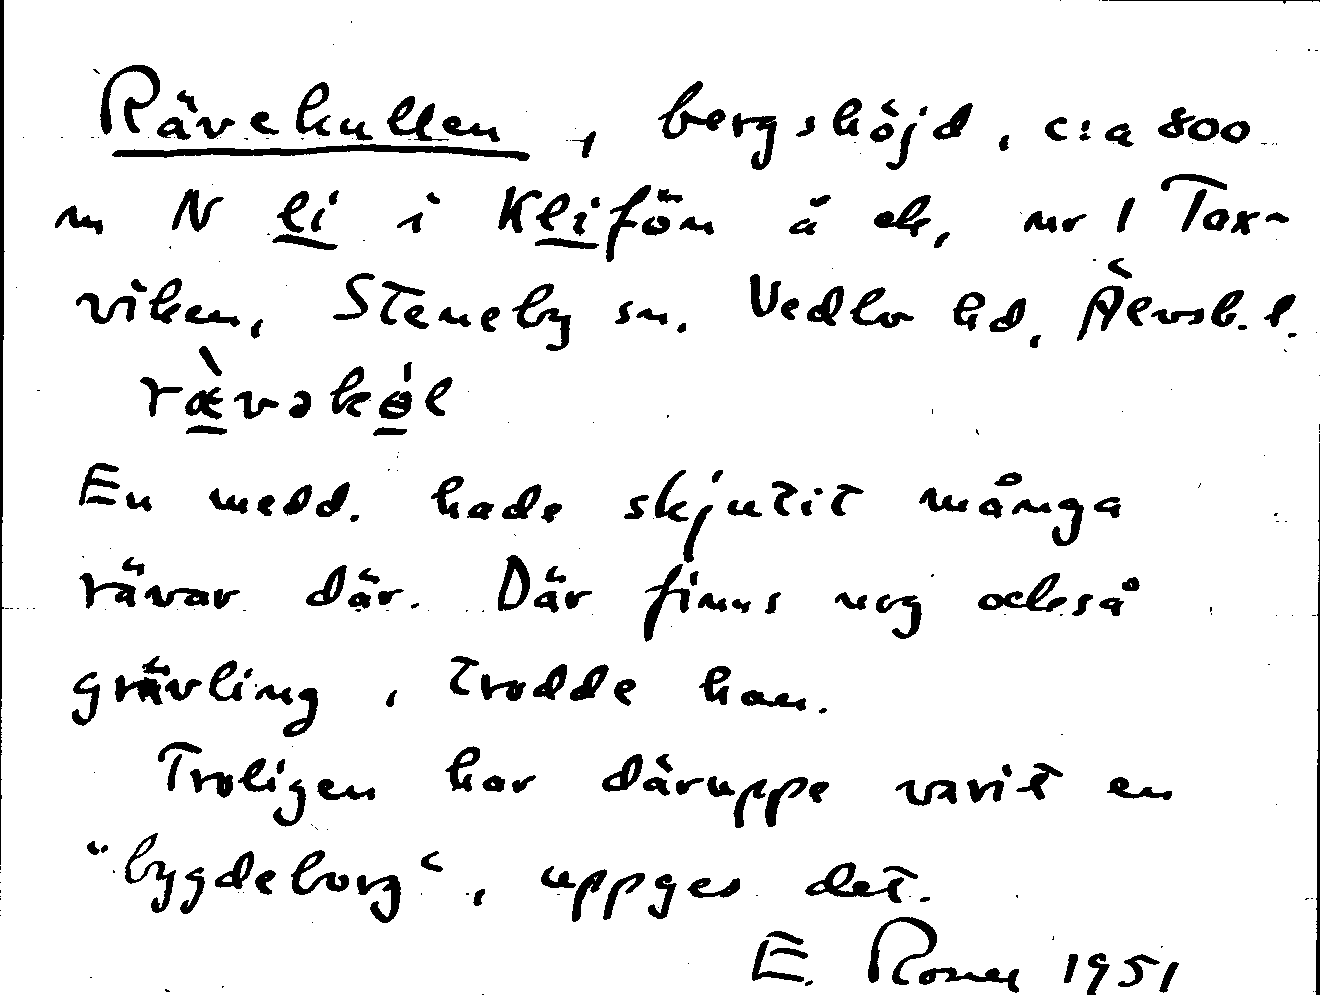 Rävekullen, bergshöjd, c:a 800
m N li i Klifön å ek, nr 1 Tax-
viken, Steneby sn. Vedbo hd, Älvsb. l.
En medd. hade skjutit många
rävar där. Där finns nog också
grävling, trodde han.
Troligen har däruppe varit en
"bygdeborg", uppges det.
E. Rosell 1951